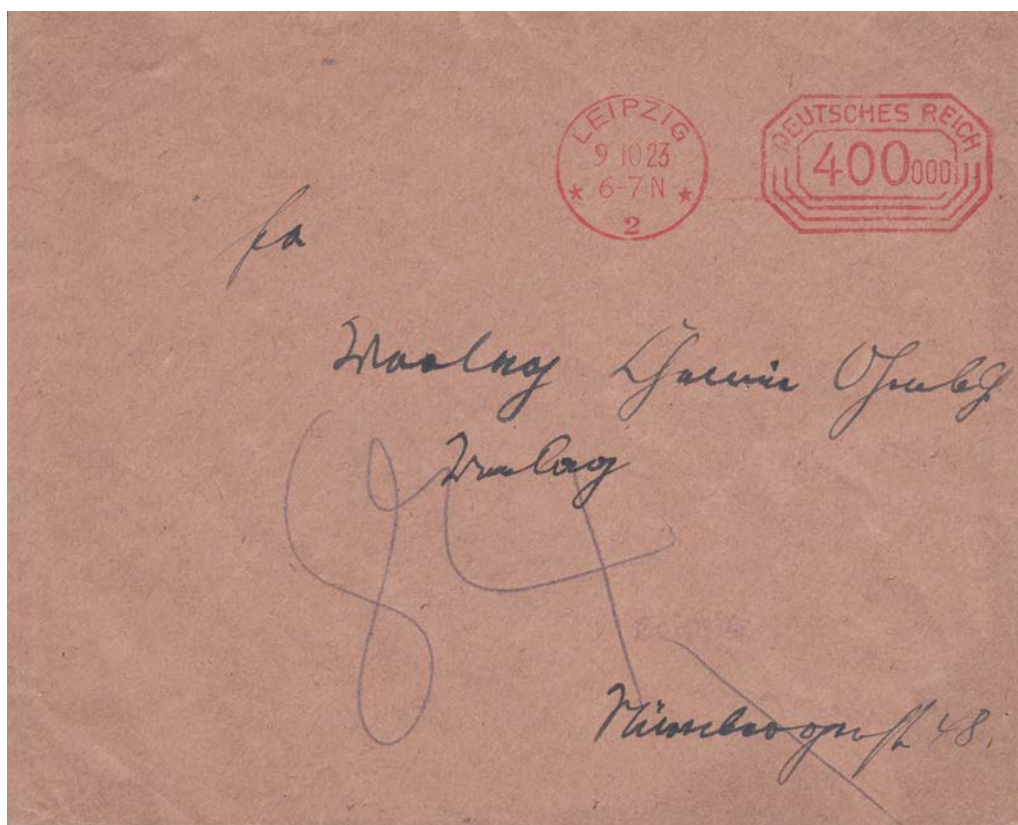 LEIPZIG
9 10 23
* 6-7 N *
2
DEUTSCHES REICH
400000
Fa
Verlag Chemie GmbH
Verlag
Nürnbergerst 48.